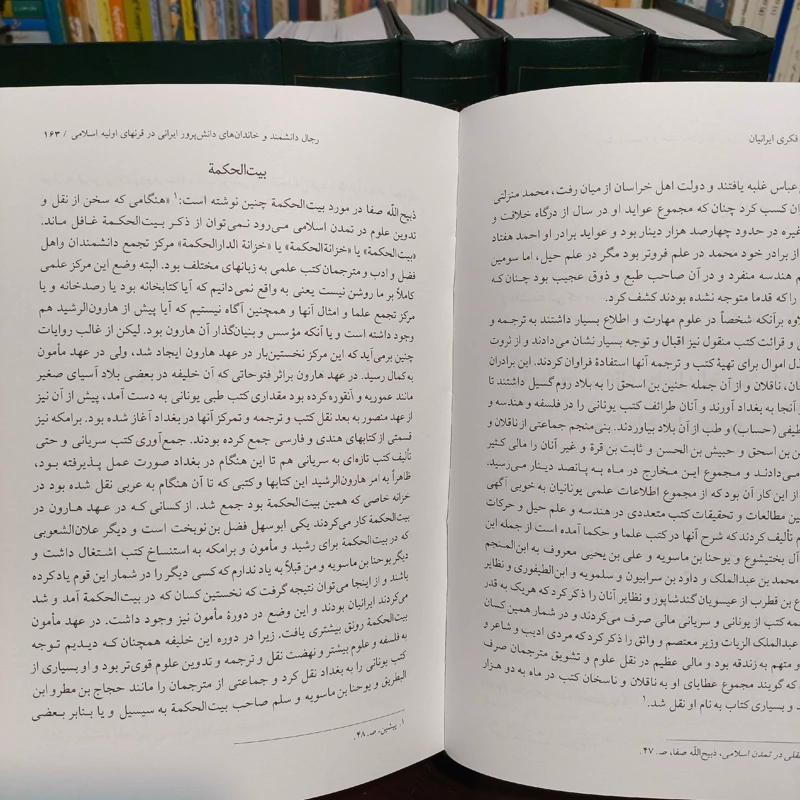 فکری ایرانیان
عباس غلبه یافتند و دولت اهل خراسان از میان رفت، محمد منزلتی
ان کسب کرد چنان که مجموع عواید او در سال از درگاه خلافت و
غیره در حدود چهارصد هزار دینار بود و عواید برادر او احمد هفتاد
از برادر خود محمد در علم فروتر بود مگر در علم حیل، اما سومین
م هندسه منفرد و در آن صاحب طبع و ذوق عجیب بود چنان‌که
را که قدما متوجه نشده بودند کشف کرد.
لاوه برآنکه شخصاً در علوم مهارت و اطلاع بسیار داشتند به ترجمه و
ی و قرائت کتب منقول نیز اقبال و توجه بسیار نشان می‌دادند و از ثروت
ذل اموال برای تهیهٔ کتب و ترجمه آنها استفادهٔ فراوان کردند. این برادران
ان، ناقلان و از آن جمله حنین بن اسحق را به بلاد روم گسیل داشتند تا
آنجا به بغداد آورند و آنان طرائف کتب یونانی را در فلسفه و هندسه و
طیقی (حساب) و طب از آن بلاد بیاوردند. بنی‌منجم جماعتی از ناقلان و
ن بن اسحق و حبیش بن الحسن و ثابت بن قرة و غیر آنان را مالی کثیر
می‌دادند و مجموع این مخارج در ماه به پانصد دینار می‌رسید.
از این کار آن بود که از مجموع اطلاعات علمی یونانیان به خوبی آگهی
ین مطالعات و تحقیقات کتب متعددی در هندسه و علم حیل و حرکات
م تألیف کردند که شرح آنها در کتب علما و حکما آمده است از جمله این
آل بختیشوع و یوحنا بن ماسویه و علی بن یحیی معروف به ابن‌المنجم
محمد بن عبدالملک و داود بن سرابیون و سلمویه و ابن‌الطیفوری و نظایر
ع بن قطرب از عیسویان گندشاپور و نظایر آنان را ذکر کرد که هریک به قدر
مه کتب از یونانی و سریانی مالی صرف می‌کردند و در شمار همین کسان
عبدالملک الزیات وزیر معتصم و واثق را ذکر کرد که مردی ادیب و شاعر و
و متهم به زندقه بود و مالی عظیم در نقل علوم و تشویق مترجمان صرف
که گویند مجموع عطایای او به ناقلان و ناسخان کتب در ماه به دو هزار
د و بسیاری کتاب به نام او نقل شد.۱
قلی در تمدن اسلامی، ذبیح‌اللّه صفا، ص. ۴۷.
رجال دانشمند و خاندان‌های دانش‌پرور ایرانی در قرنهای اولیه اسلامی / ۱۶۳
بیت‌الحکمة
ذبیح‌اللّه صفا در مورد بیت‌الحکمة چنین نوشته است:۱ «هنگامی که سخن از نقل و
تدوین علوم در تمدن اسلامی می‌رود نمی‌توان از ذکر بیت‌الحکمة غافل ماند.
«بیت‌الحکمة» یا «خزانةالحکمة» یا «خزانة الدارالحکمة» مرکز تجمع دانشمندان واهل
فضل و ادب و مترجمان کتب علمی به زبانهای مختلف بود. البته وضع این مرکز علمی
کاملاً بر ما روشن نیست یعنی به واقع نمی‌دانیم که آیا کتابخانه بود یا رصدخانه و یا
مرکز تجمع علما و امثال آنها و همچنین آگاه نیستیم که آیا پیش از هارون‌الرشید هم
وجود داشته است و یا آنکه مؤسس و بنیان‌گذار آن هارون بود. لیکن از غالب روایات
چنین برمی‌آید که این مرکز نخستین‌بار در عهد هارون ایجاد شد، ولی در عهد مأمون
به‌کمال رسید. در عهد هارون براثر فتوحاتی که آن خلیفه در بعضی بلاد آسیای صغیر
مانند عموریه و آنقوره کرده بود مقداری کتب طبی یونانی به دست آمد، پیش از آن نیز
از عهد منصور به بعد نقل کتب و ترجمه و تمرکز آنها در بغداد آغاز شده بود. برامکه نیز
قسمتی از کتابهای هندی و فارسی جمع کرده بودند. جمع‌آوری کتب سریانی و حتی
تألیف کتب تازه‌ای به سریانی هم تا این هنگام در بغداد صورت عمل پذیرفته بود،
ظاهراً به امر هارون‌الرشید این کتابها و کتبی که تا آن هنگام به عربی نقل شده بود در
خزانه خاصی که همین بیت‌الحکمة بود جمع شد. از کسانی که در عهد هارون در
بیت‌الحکمة کار می‌کردند یکی ابوسهل فضل بن نوبخت است و دیگر علان‌الشعوبی
که در بیت‌الحکمة برای رشید و مأمون و برامکه به استنساخ کتب اشتغال داشت و
دیگر یوحنا بن ماسویه و من قبلاً به یاد ندارم که کسی دیگر را در شمار این قوم یاد کرده
باشند و از اینجا می‌توان نتیجه گرفت که نخستین کسان که در بیت‌الحکمة آمد و شد
می‌کردند ایرانیان بودند و این وضع در دورهٔ مأمون نیز وجود داشت. در عهد مأمون
بیت‌الحکمة رونق بیشتری یافت. زیرا در دوره این خلیفه همچنان که دیدیم توجه
به فلسفه و علوم بیشتر و نهضت نقل و ترجمه و تدوین علوم قوی‌تر بود و او بسیاری از
کتب یونانی را به بغداد نقل کرد و جماعتی از مترجمان را مانند حجاج بن مطر و ابن
البطریق و یوحنا بن ماسویه و سلم صاحب بیت‌الحکمة به سیسیل و یا بنابر بعضی
۱. پیشین، ص. ۴۸.